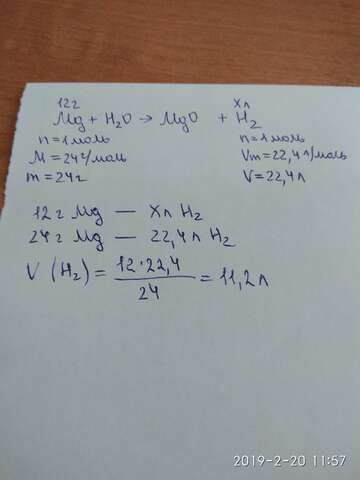 12г хл
Mg + H₂O → MgO + H₂
n = 1 моль n = 1 моль
M = 24 г/моль Vm = 22,4 л/моль
m = 24 г V = 22,4 л
12 г Mg — Xл H₂
24 г Mg — 22,4 л H₂
V (H₂) = 12·22,4 / 24 = 11,2 л
2019-2-20 11:57